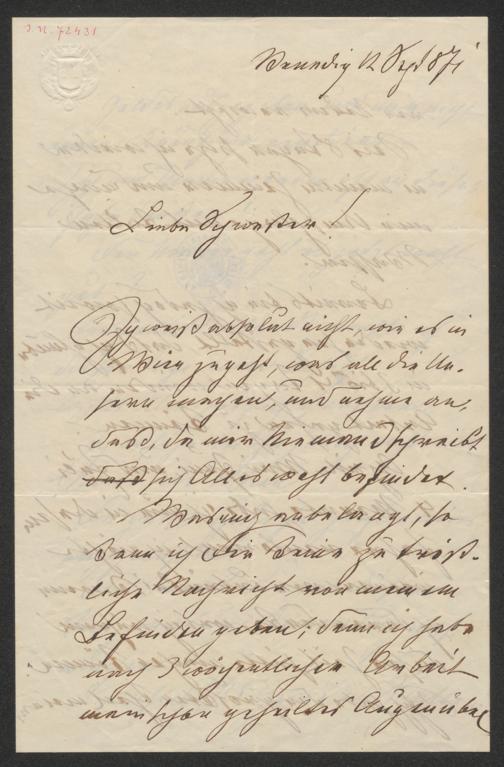 I.N. 72431
Venedig 12 Sept 871
Liebe Schwester!
Ich weiß absolut nicht, wie es in
Wien zugeht, was all die Un-
sern machen, und nehme an,
dass, da mir Niemand schreibt
dass sich Alles wohl befindet.
Was mich anbelangt, so
kann ich Dir keine zu tröst-
liche Nachricht von meinem
Befinden geben; denn ich habe
nach 3 wöchentlicher Arbeit
mein schon geheiltes Augenübel